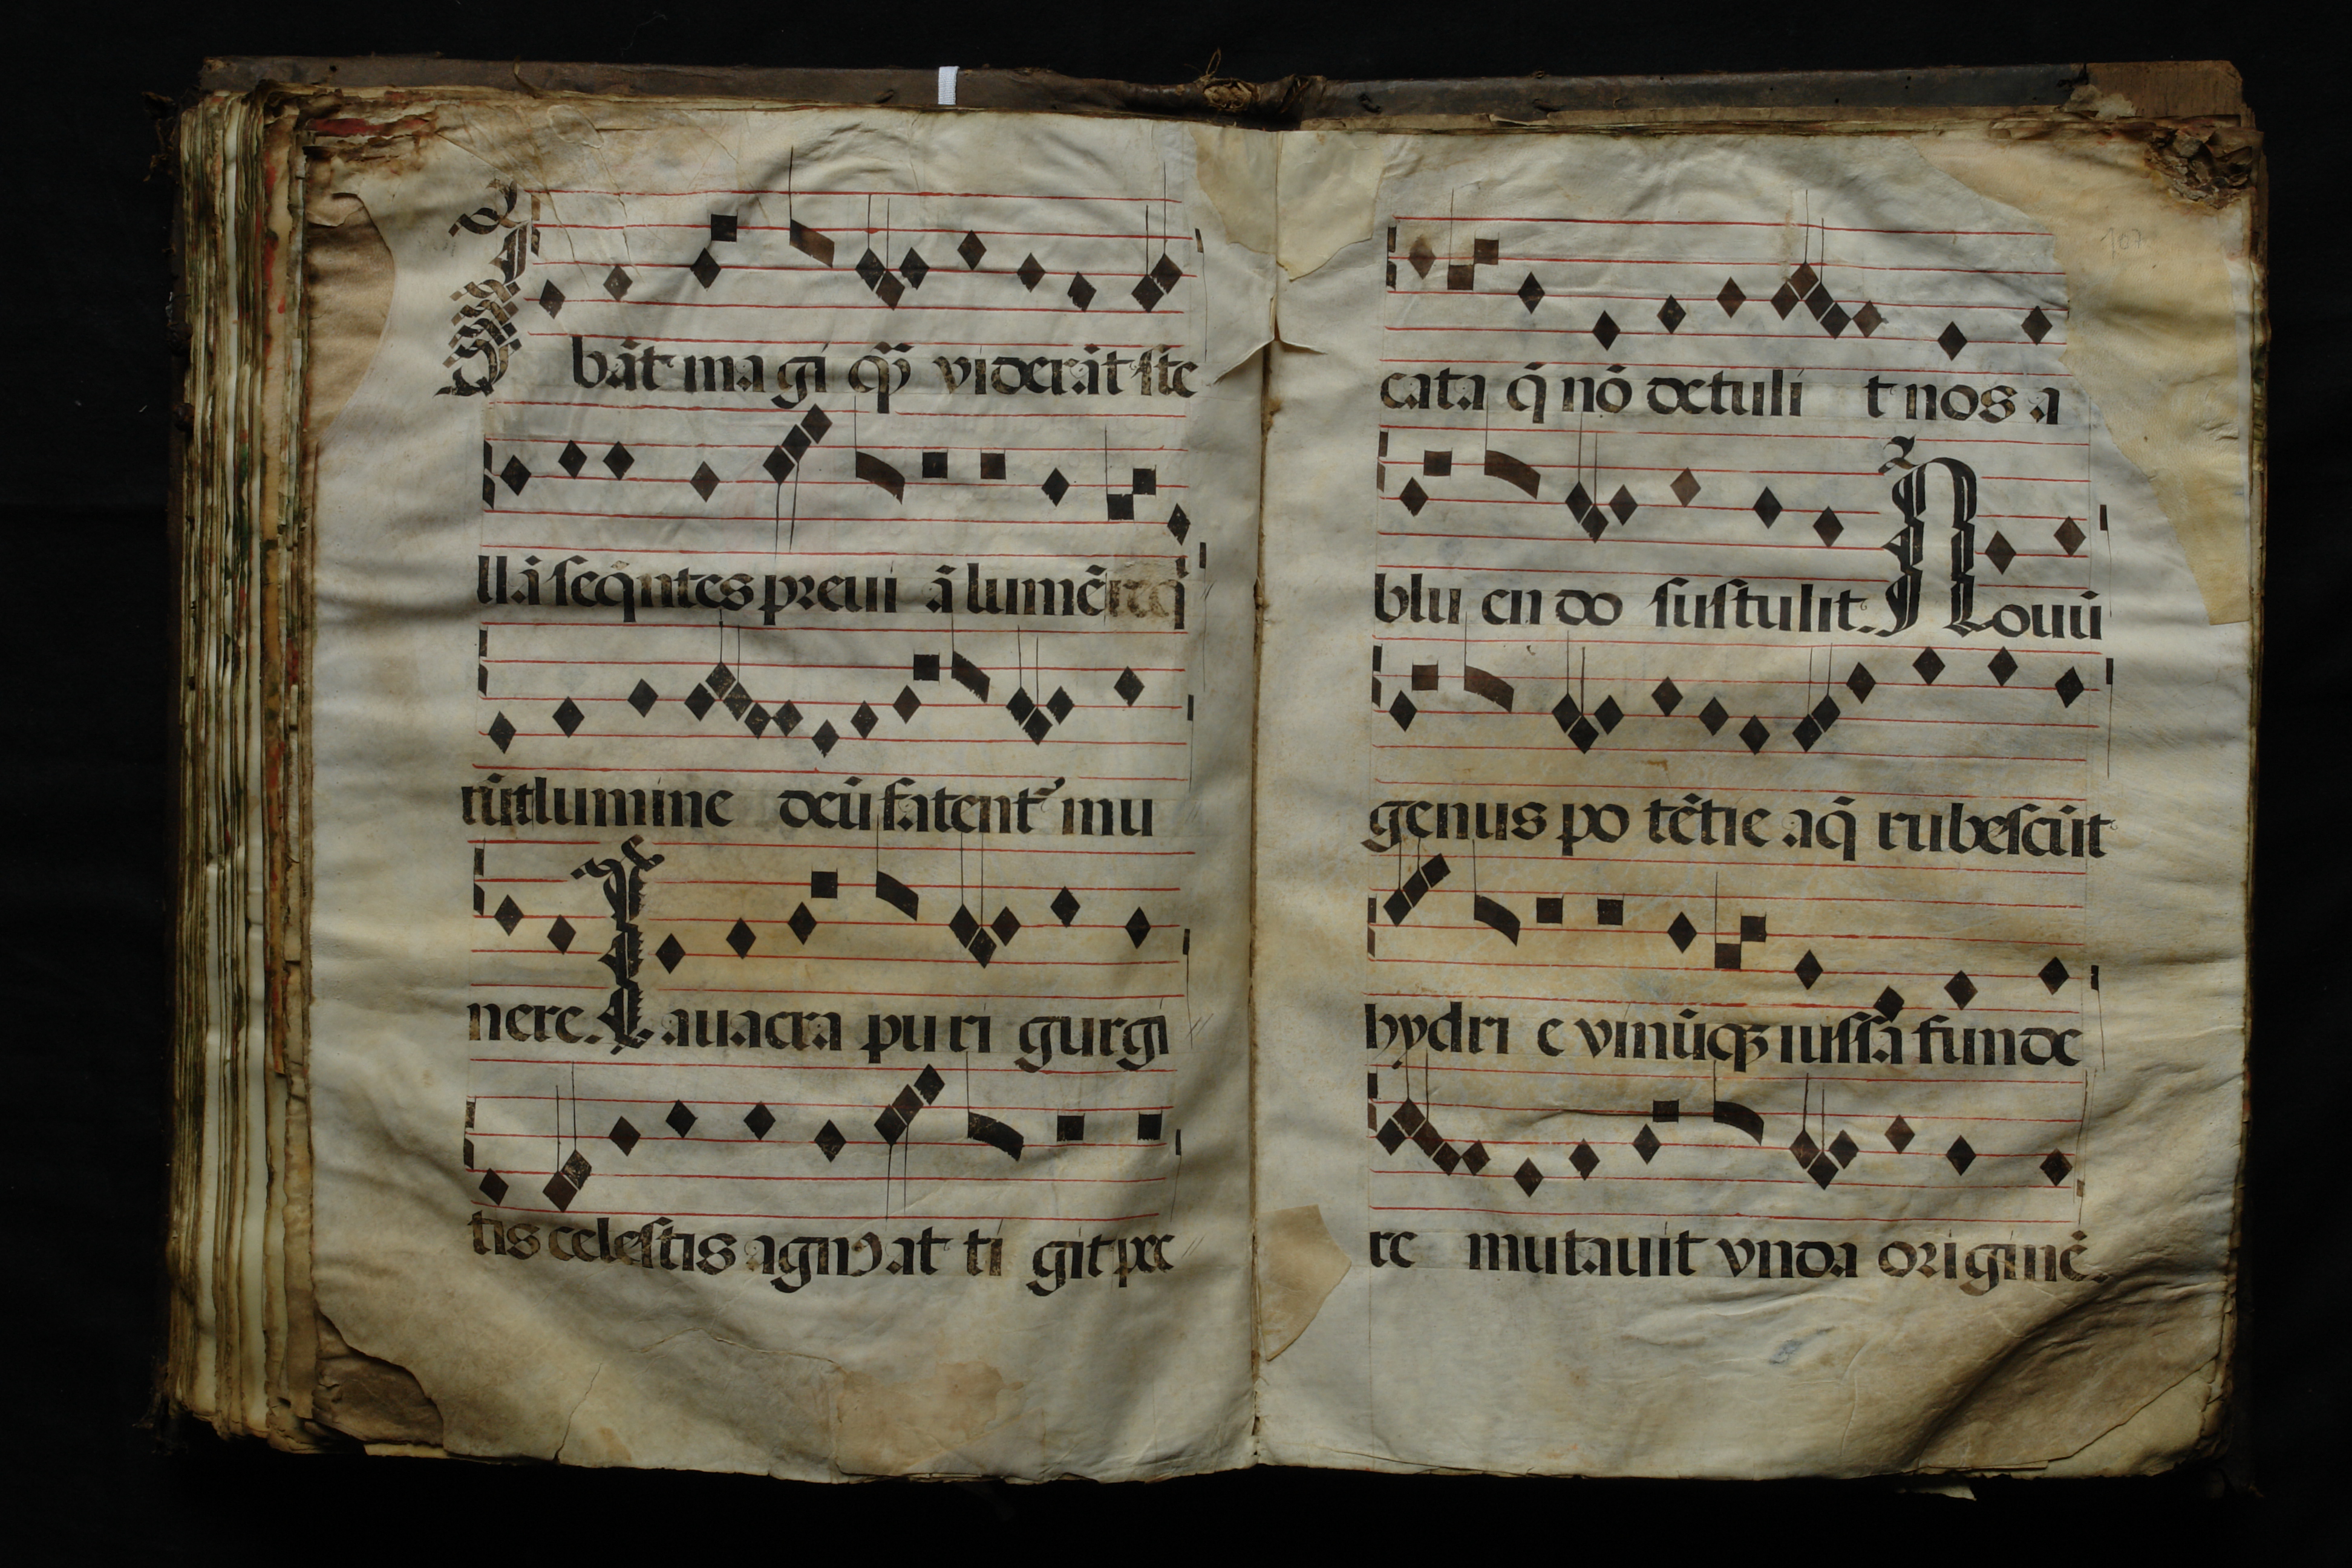 Ibāt ma gi qͫ viderāt ste
llā seq̄ntes previ ā lumē req̄
rūt lumine deū fatentᷣ mu
nere. Lauacra pu ri gurgi
tis celestis agnꝰ at ti git pec
cata q̄ nō detuli t nos a
blu en do sustulit. Nouū
genus po tētie aq̄ rubescūt
hydri e vinūqꝫ iussa funde
re mutauit vnda originē.
107